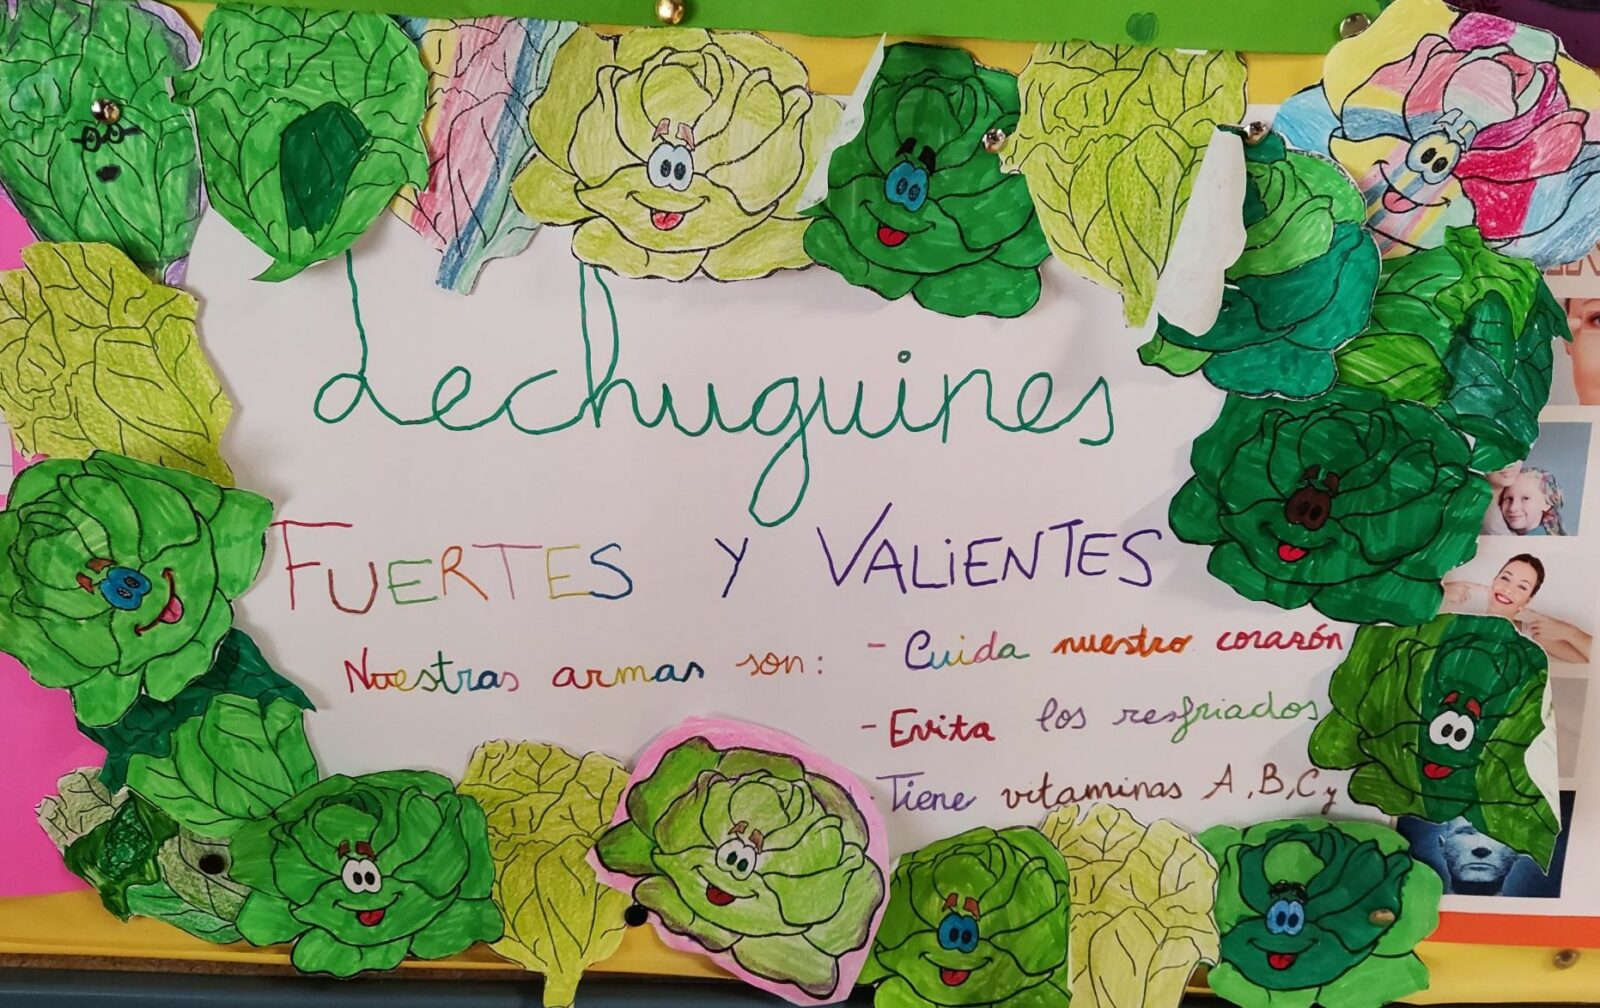 Lechuguines
FUERTES Y VALiENTES
Nuestras armas son:
- Cuida nuestro corazón
- Evita los resfriados
- Tiene vitaminas A, B, C y